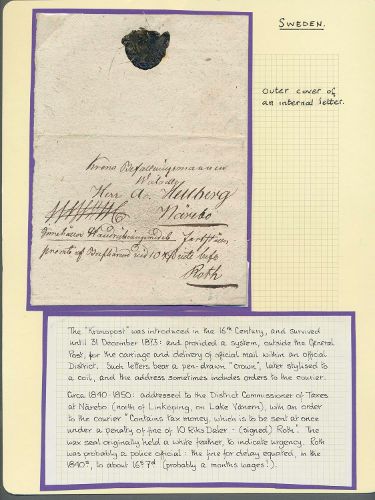 SWEDEN.
outer cover of
an internal letter.
Krono Befallningsmannen
Herr A.
Närebo
Roth
The "Kronopost" was introduced in the 16th Century, and survived
until 31 December 1873: and provided a system, outside the General
Post, for the carriage and delivery of official mail within an official
District. Such letters bear a pen-drawn "crown", later stylised to
a coil, and the address sometimes includes orders to the courier.
Circa 1840-1850: addressed to the District Commissioner of Taxes
at Närebo (north of Linköping, on Lake Vänern), with an order
to the courier "Contains tax money, which is to be sent at once
under a penalty of fine of 10 Riks Daler - (signed) Roth". The
wax seal originally held a white feather, to indicate urgency. Roth
was probably a police official: the fine for delay equated, in the
1840s, to about 16s 7d (probably a months wages!).